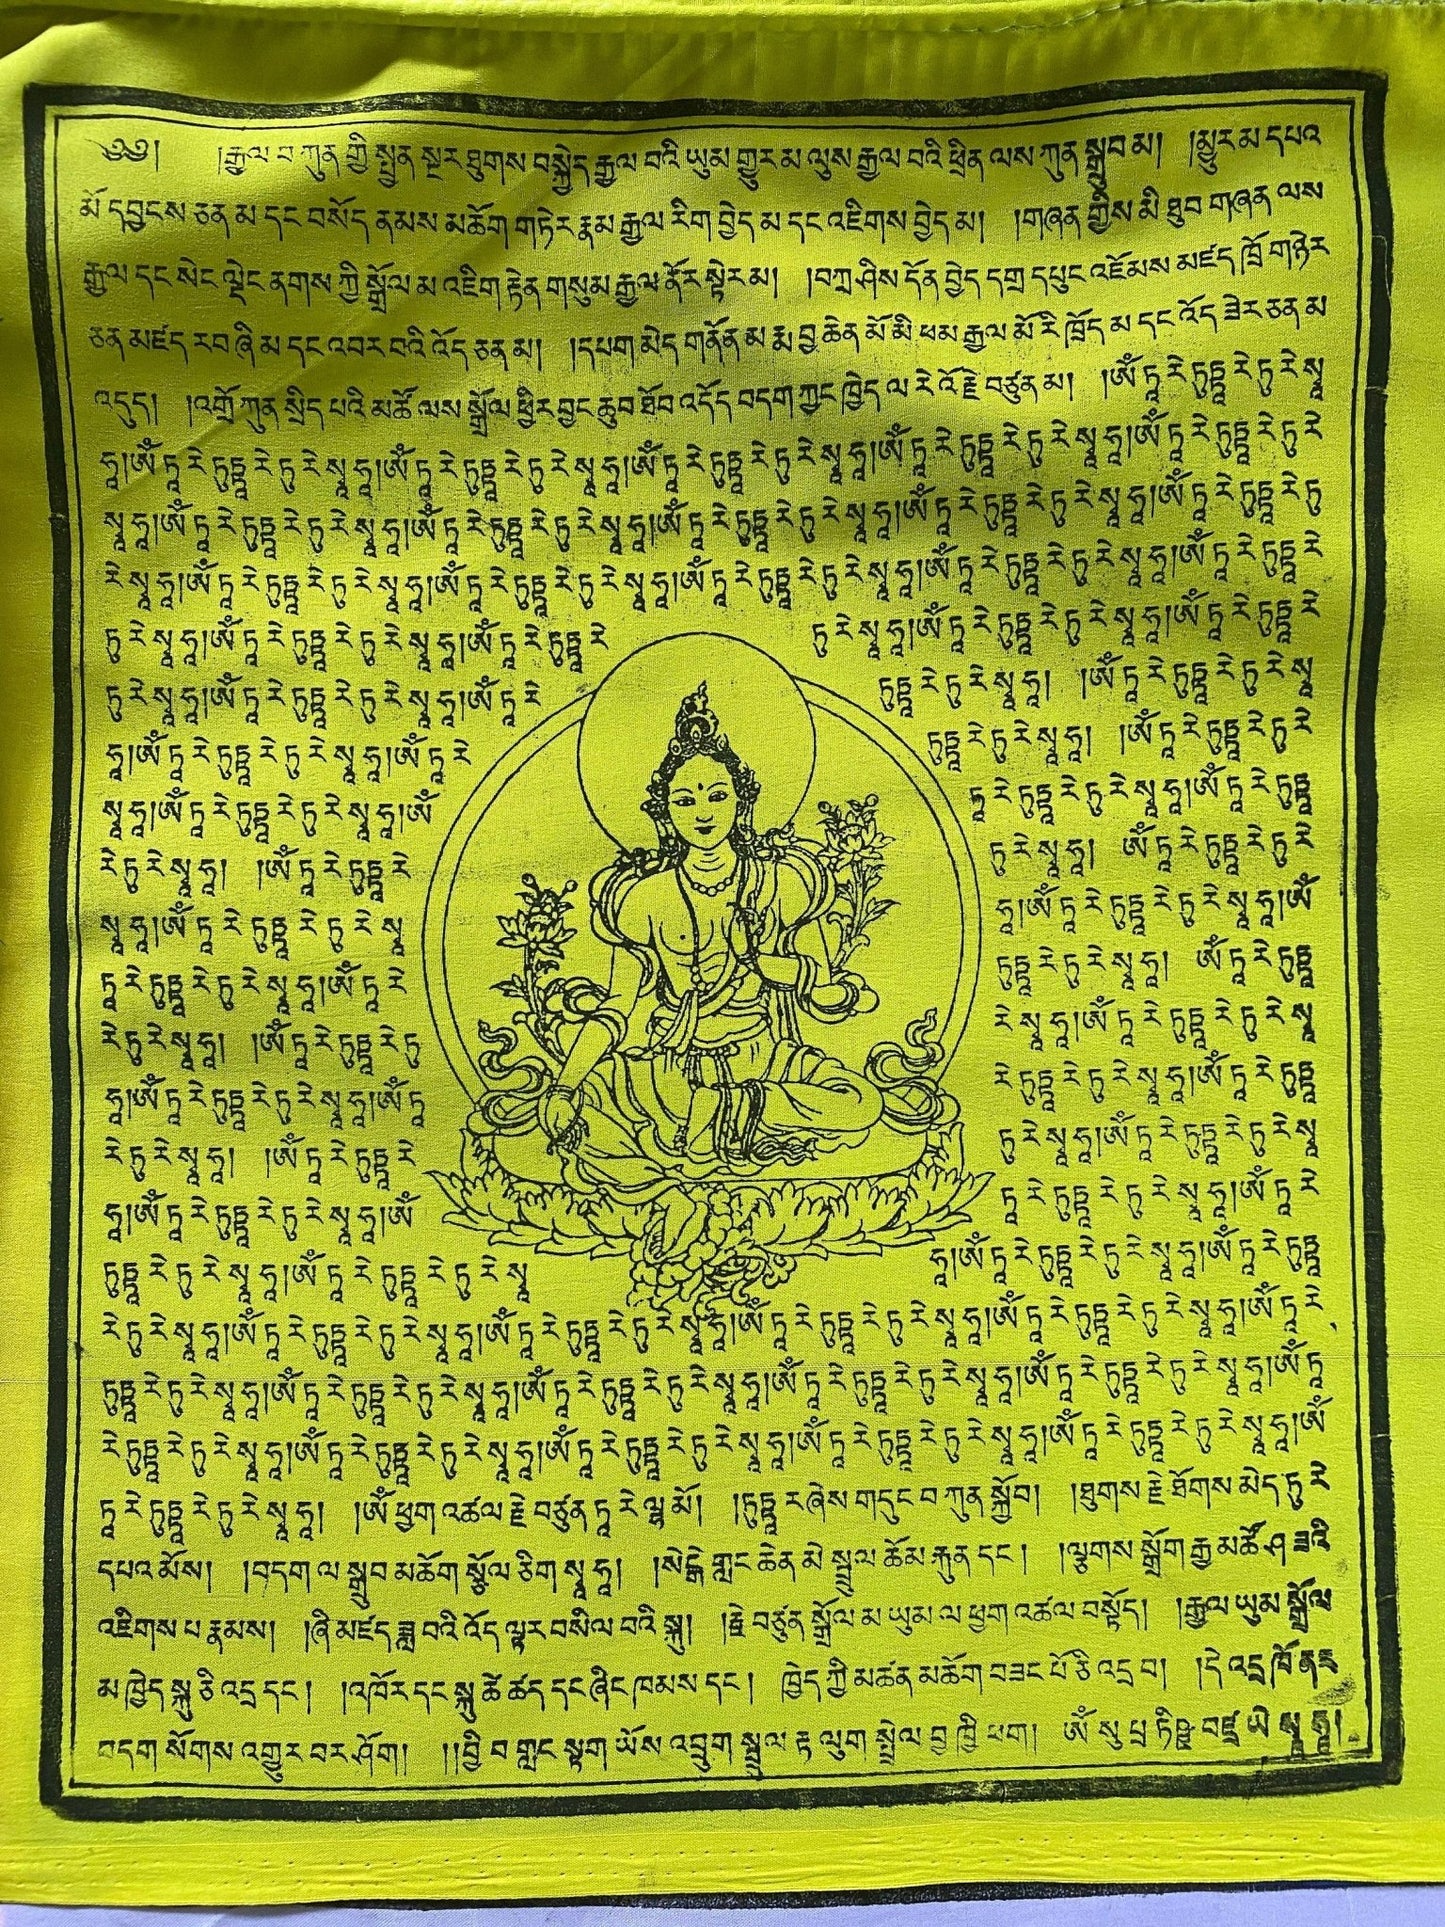 ༄༅། །རྒྱལ་བ་ཀུན་གྱི་སྤྱན་སྔར་ཐུགས་བསྐྱེད་རྒྱལ་བའི་ཡུམ་གྱུར་མ་ལུས་རྒྱལ་བའི་ཕྲིན་ལས་ཀུན་སྒྲུབ་མ། །མྱུར་མ་དཔའ
མོ་དབྱངས་ཅན་མ་དང་བསོད་ནམས་མཆོག་གཏེར་རྣམ་རྒྱལ་རིག་བྱེད་མ་དང་འཇིགས་བྱེད་མ། །གཞན་གྱིས་མི་ཐུབ་གཞན་ལས
རྒྱལ་དང་སེང་ལྡེང་ནགས་ཀྱི་སྒྲོལ་མ་འཇིག་རྟེན་གསུམ་རྒྱལ་ནོར་སྟེར་མ། །བཀྲ་ཤིས་དོན་བྱེད་དགྲ་དཔུང་འཇོམས་མཛད་ཁྲོ་གཉེར
ཅན་མཛད་རབ་ཞི་མ་དང་འབར་བའི་འོད་ཅན་མ། །དཔག་མེད་གནོན་མ་རྨ་བྱ་ཆེན་མོ་མི་ཕམ་རྒྱལ་མོ་རི་ཁྲོད་མ་དང་འོད་ཟེར་ཅན་མ
འདུད། །འགྲོ་ཀུན་སྲིད་པའི་མཚོ་ལས་སྒྲོལ་ཕྱིར་བྱང་ཆུབ་ཐོབ་འདོད་བདག་ཀྱང་ཁྱེད་ལ་རེ་འོ་རྗེ་བཙུན་མ། །ཨོཾ་ཏཱ་རེ་ཏུཏྟཱ་རེ་ཏུ་རེ་སྭཱ
ཧཱ།ཨོཾ་ཏཱ་རེ་ཏུཏྟཱ་རེ་ཏུ་རེ་སྭཱ་ཧཱ།ཨོཾ་ཏཱ་རེ་ཏུཏྟཱ་རེ་ཏུ་རེ་སྭཱ་ཧཱ།ཨོཾ་ཏཱ་རེ་ཏུཏྟཱ་རེ་ཏུ་རེ་སྭཱ་ཧཱ།ཨོཾ་ཏཱ་རེ་ཏུཏྟཱ་རེ་ཏུ་རེ་སྭཱ་ཧཱ།ཨོཾ་ཏཱ་རེ་ཏུཏྟཱ་རེ་ཏུ་རེ
སྭཱ་ཧཱ།ཨོཾ་ཏཱ་རེ་ཏུཏྟཱ་རེ་ཏུ་རེ་སྭཱ་ཧཱ།ཨོཾ་ཏཱ་རེ་ཏུཏྟཱ་རེ་ཏུ་རེ་སྭཱ་ཧཱ།ཨོཾ་ཏཱ་རེ་ཏུཏྟཱ་རེ་ཏུ་རེ་སྭཱ་ཧཱ།ཨོཾ་ཏཱ་རེ་ཏུཏྟཱ་རེ་ཏུ་རེ་སྭཱ་ཧཱ།ཨོཾ་ཏཱ་རེ་ཏུཏྟཱ་རེ་ཏུ
རེ་སྭཱ་ཧཱ།ཨོཾ་ཏཱ་རེ་ཏུཏྟཱ་རེ་ཏུ་རེ་སྭཱ་ཧཱ།ཨོཾ་ཏཱ་རེ་ཏུཏྟཱ་རེ་ཏུ་རེ་སྭཱ་ཧཱ།ཨོཾ་ཏཱ་རེ་ཏུཏྟཱ་རེ་ཏུ་རེ་སྭཱ་ཧཱ།ཨོཾ་ཏཱ་རེ་ཏུཏྟཱ་རེ་ཏུ་རེ་སྭཱ་ཧཱ།ཨོཾ་ཏཱ་རེ་ཏུཏྟཱ་རེ
ཏུ་རེ་སྭཱ་ཧཱ།ཨོཾ་ཏཱ་རེ་ཏུཏྟཱ་རེ་ཏུ་རེ་སྭཱ་ཧཱ།ཨོཾ་ཏཱ་རེ་ཏུཏྟཱ་རེ ཏུ་རེ་སྭཱ་ཧཱ།ཨོཾ་ཏཱ་རེ་ཏུཏྟཱ་རེ་ཏུ་རེ་སྭཱ་ཧཱ།ཨོཾ་ཏཱ་རེ་ཏུཏྟཱ་རེ
ཏུ་རེ་སྭཱ་ཧཱ།ཨོཾ་ཏཱ་རེ་ཏུཏྟཱ་རེ་ཏུ་རེ་སྭཱ་ཧཱ།ཨོཾ་ཏཱ་རེ ཏུཏྟཱ་རེ་ཏུ་རེ་སྭཱ་ཧཱ། །ཨོཾ་ཏཱ་རེ་ཏུཏྟཱ་རེ་ཏུ་རེ་སྭཱ
ཧཱ།ཨོཾ་ཏཱ་རེ་ཏུཏྟཱ་རེ་ཏུ་རེ་སྭཱ་ཧཱ།ཨོཾ་ཏཱ་རེ ཏུཏྟཱ་རེ་ཏུ་རེ་སྭཱ་ཧཱ། །ཨོཾ་ཏཱ་རེ་ཏུཏྟཱ་རེ་ཏུ་རེ
སྭཱ་ཧཱ།ཨོཾ་ཏཱ་རེ་ཏུཏྟཱ་རེ་ཏུ་རེ་སྭཱ་ཧཱ།ཨོཾ ཏཱ་རེ་ཏུཏྟཱ་རེ་ཏུ་རེ་སྭཱ་ཧཱ།ཨོཾ་ཏཱ་རེ་ཏུཏྟཱ
རེ་ཏུ་རེ་སྭཱ་ཧཱ། །ཨོཾ་ཏཱ་རེ་ཏུཏྟཱ་རེ ཏུ་རེ་སྭཱ་ཧཱ། ཨོཾ་ཏཱ་རེ་ཏུཏྟཱ་རེ་ཏུ་རེ
སྭཱ་ཧཱ།ཨོཾ་ཏཱ་རེ་ཏུཏྟཱ་རེ་ཏུ་རེ་སྭཱ ཧཱ།ཨོཾ་ཏཱ་རེ་ཏུཏྟཱ་རེ་ཏུ་རེ་སྭཱ་ཧཱ།ཨོཾ
ཏཱ་རེ་ཏུཏྟཱ་རེ་ཏུ་རེ་སྭཱ་ཧཱ།ཨོཾ་ཏཱ་རེ ཏུཏྟཱ་རེ་ཏུ་རེ་སྭཱ་ཧཱ། ཨོཾ་ཏཱ་རེ་ཏུཏྟཱ
རེ་ཏུ་རེ་སྭཱ་ཧཱ། །ཨོཾ་ཏཱ་རེ་ཏུཏྟཱ་རེ་ཏུ རེ་སྭཱ་ཧཱ།ཨོཾ་ཏཱ་རེ་ཏུཏྟཱ་རེ་ཏུ་རེ་སྭཱ
ཧཱ།ཨོཾ་ཏཱ་རེ་ཏུཏྟཱ་རེ་ཏུ་རེ་སྭཱ་ཧཱ།ཨོཾ་ཏཱ རེ་ཏུཏྟཱ་རེ་ཏུ་རེ་སྭཱ་ཧཱ།ཨོཾ་ཏཱ་རེ་ཏུཏྟཱ
རེ་ཏུ་རེ་སྭཱ་ཧཱ། །ཨོཾ་ཏཱ་རེ་ཏུཏྟཱ་རེ ཏུ་རེ་སྭཱ་ཧཱ།ཨོཾ་ཏཱ་རེ་ཏུཏྟཱ་རེ་ཏུ་རེ་སྭཱ
ཧཱ།ཨོཾ་ཏཱ་རེ་ཏུཏྟཱ་རེ་ཏུ་རེ་སྭཱ་ཧཱ།ཨོཾ ཏཱ་རེ་ཏུཏྟཱ་རེ་ཏུ་རེ་སྭཱ་ཧཱ།ཨོཾ་ཏཱ་རེ
ཏུཏྟཱ་རེ་ཏུ་རེ་སྭཱ་ཧཱ།ཨོཾ་ཏཱ་རེ་ཏུཏྟཱ་རེ་ཏུ་རེ་སྭཱ ཧཱ།ཨོཾ་ཏཱ་རེ་ཏུཏྟཱ་རེ་ཏུ་རེ་སྭཱ་ཧཱ།ཨོཾ་ཏཱ་རེ་ཏུཏྟཱ
རེ་ཏུ་རེ་སྭཱ་ཧཱ།ཨོཾ་ཏཱ་རེ་ཏུཏྟཱ་རེ་ཏུ་རེ་སྭཱ་ཧཱ།ཨོཾ་ཏཱ་རེ་ཏུཏྟཱ་རེ་ཏུ་རེ་སྭཱ་ཧཱ།ཨོཾ་ཏཱ་རེ་ཏུཏྟཱ་རེ་ཏུ་རེ་སྭཱ་ཧཱ།ཨོཾ་ཏཱ་རེ་ཏུཏྟཱ་རེ་ཏུ་རེ་སྭཱ་ཧཱ།ཨོཾ་ཏཱ་རེ
ཏུཏྟཱ་རེ་ཏུ་རེ་སྭཱ་ཧཱ།ཨོཾ་ཏཱ་རེ་ཏུཏྟཱ་རེ་ཏུ་རེ་སྭཱ་ཧཱ།ཨོཾ་ཏཱ་རེ་ཏུཏྟཱ་རེ་ཏུ་རེ་སྭཱ་ཧཱ།ཨོཾ་ཏཱ་རེ་ཏུཏྟཱ་རེ་ཏུ་རེ་སྭཱ་ཧཱ།ཨོཾ་ཏཱ་རེ་ཏུཏྟཱ་རེ་ཏུ་རེ་སྭཱ་ཧཱ།ཨོཾ་ཏཱ
རེ་ཏུཏྟཱ་རེ་ཏུ་རེ་སྭཱ་ཧཱ།ཨོཾ་ཏཱ་རེ་ཏུཏྟཱ་རེ་ཏུ་རེ་སྭཱ་ཧཱ།ཨོཾ་ཏཱ་རེ་ཏུཏྟཱ་རེ་ཏུ་རེ་སྭཱ་ཧཱ།ཨོཾ་ཏཱ་རེ་ཏུཏྟཱ་རེ་ཏུ་རེ་སྭཱ་ཧཱ།ཨོཾ་ཏཱ་རེ་ཏུཏྟཱ་རེ་ཏུ་རེ་སྭཱ་ཧཱ།ཨོཾ
ཏཱ་རེ་ཏུཏྟཱ་རེ་ཏུ་རེ་སྭཱ་ཧཱ། །ཨོཾ་ཕྱག་འཚལ་རྗེ་བཙུན་ཏཱ་རེ་ལྷ་མོ། །ཏུཏྟཱ་ར་ཞེས་གདུང་བ་ཀུན་སྐྱོབ། །ཐུགས་རྗེ་ཐོགས་མེད་ཏུ་རེ
དཔའ་མོས། །བདག་ལ་སྒྲུབ་མཆོག་སྩོལ་ཅིག་སྭཱ་ཧཱ། །སེངྒེ་གླང་ཆེན་མེ་སྦྲུལ་ཆོམ་རྐུན་དང་། །ལྕགས་སྒྲོག་རྒྱ་མཚོ་ཤ་ཟའི
འཇིགས་པ་རྣམས། །ཞི་མཛད་ཟླ་བའི་འོད་ལྟར་བསིལ་བའི་སྐུ། །རྗེ་བཙུན་སྒྲོལ་མ་ཡུམ་ལ་ཕྱག་འཚལ་བསྟོད། །རྒྱལ་ཡུམ་སྒྲོལ
མ་ཁྱེད་སྐུ་ཅི་འདྲ་དང་། །འཁོར་དང་སྐུ་ཚེ་ཚད་དང་ཞིང་ཁམས་དང་། ཁྱེད་ཀྱི་མཚན་མཆོག་བཟང་པོ་ཅི་འདྲ་བ། །དེ་འདྲ་ཁོ་ནར
བདག་སོགས་འགྱུར་བར་ཤོག། །།བྱི་བ་གླང་སྟག་ཡོས་འབྲུག་སྦྲུལ་རྟ་ལུག་སྤྲེལ་བྱ་ཁྱི་ཕག། ཨོཾ་སུ་པྲ་ཏིཥྛ་བཛྲ་ཡེ་སྭཱ་ཧཱ།